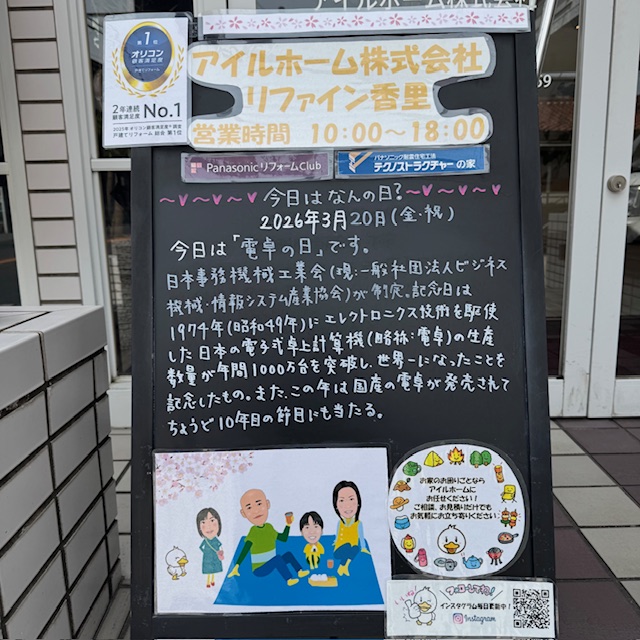 アイルホーム株式会社
第1位
オリコン
顧客満足度
戸建てリフォーム
2年連続
顧客満足度
No.1
2025年 オリコン顧客満足度®調査
戸建てリフォーム 総合 第1位
アイルホーム株式会社
リファイン香里
営業時間 10:00～18:00
Panasonic リフォームClub
パナソニック耐震住宅工法
テクノストラクチャーの家
今日はなんの日?
2026年3月20日(金・祝)
今日は「電卓の日」です。
日本事務機械工業会(現・一般社団法人ビジネス
機械・情報システム産業協会)が制定。記念日は
1974年(昭和49年)にエレクトロニクス技術を駆使
した日本の電子式卓上計算機(略称・電卓)の生産
数量が年間1000万台を突破し、世界一になったことを
記念したもの。また、この年は国産の電卓が発売されて
ちょうど10年目の節目にも当たる。
お家のお困りごとなら
アイルホームに
お任せください!
ご相談、お見積りだけでも
お気軽にお立ち寄りください。
フォローしてね!
インスタグラム毎日更新中!
Instagram